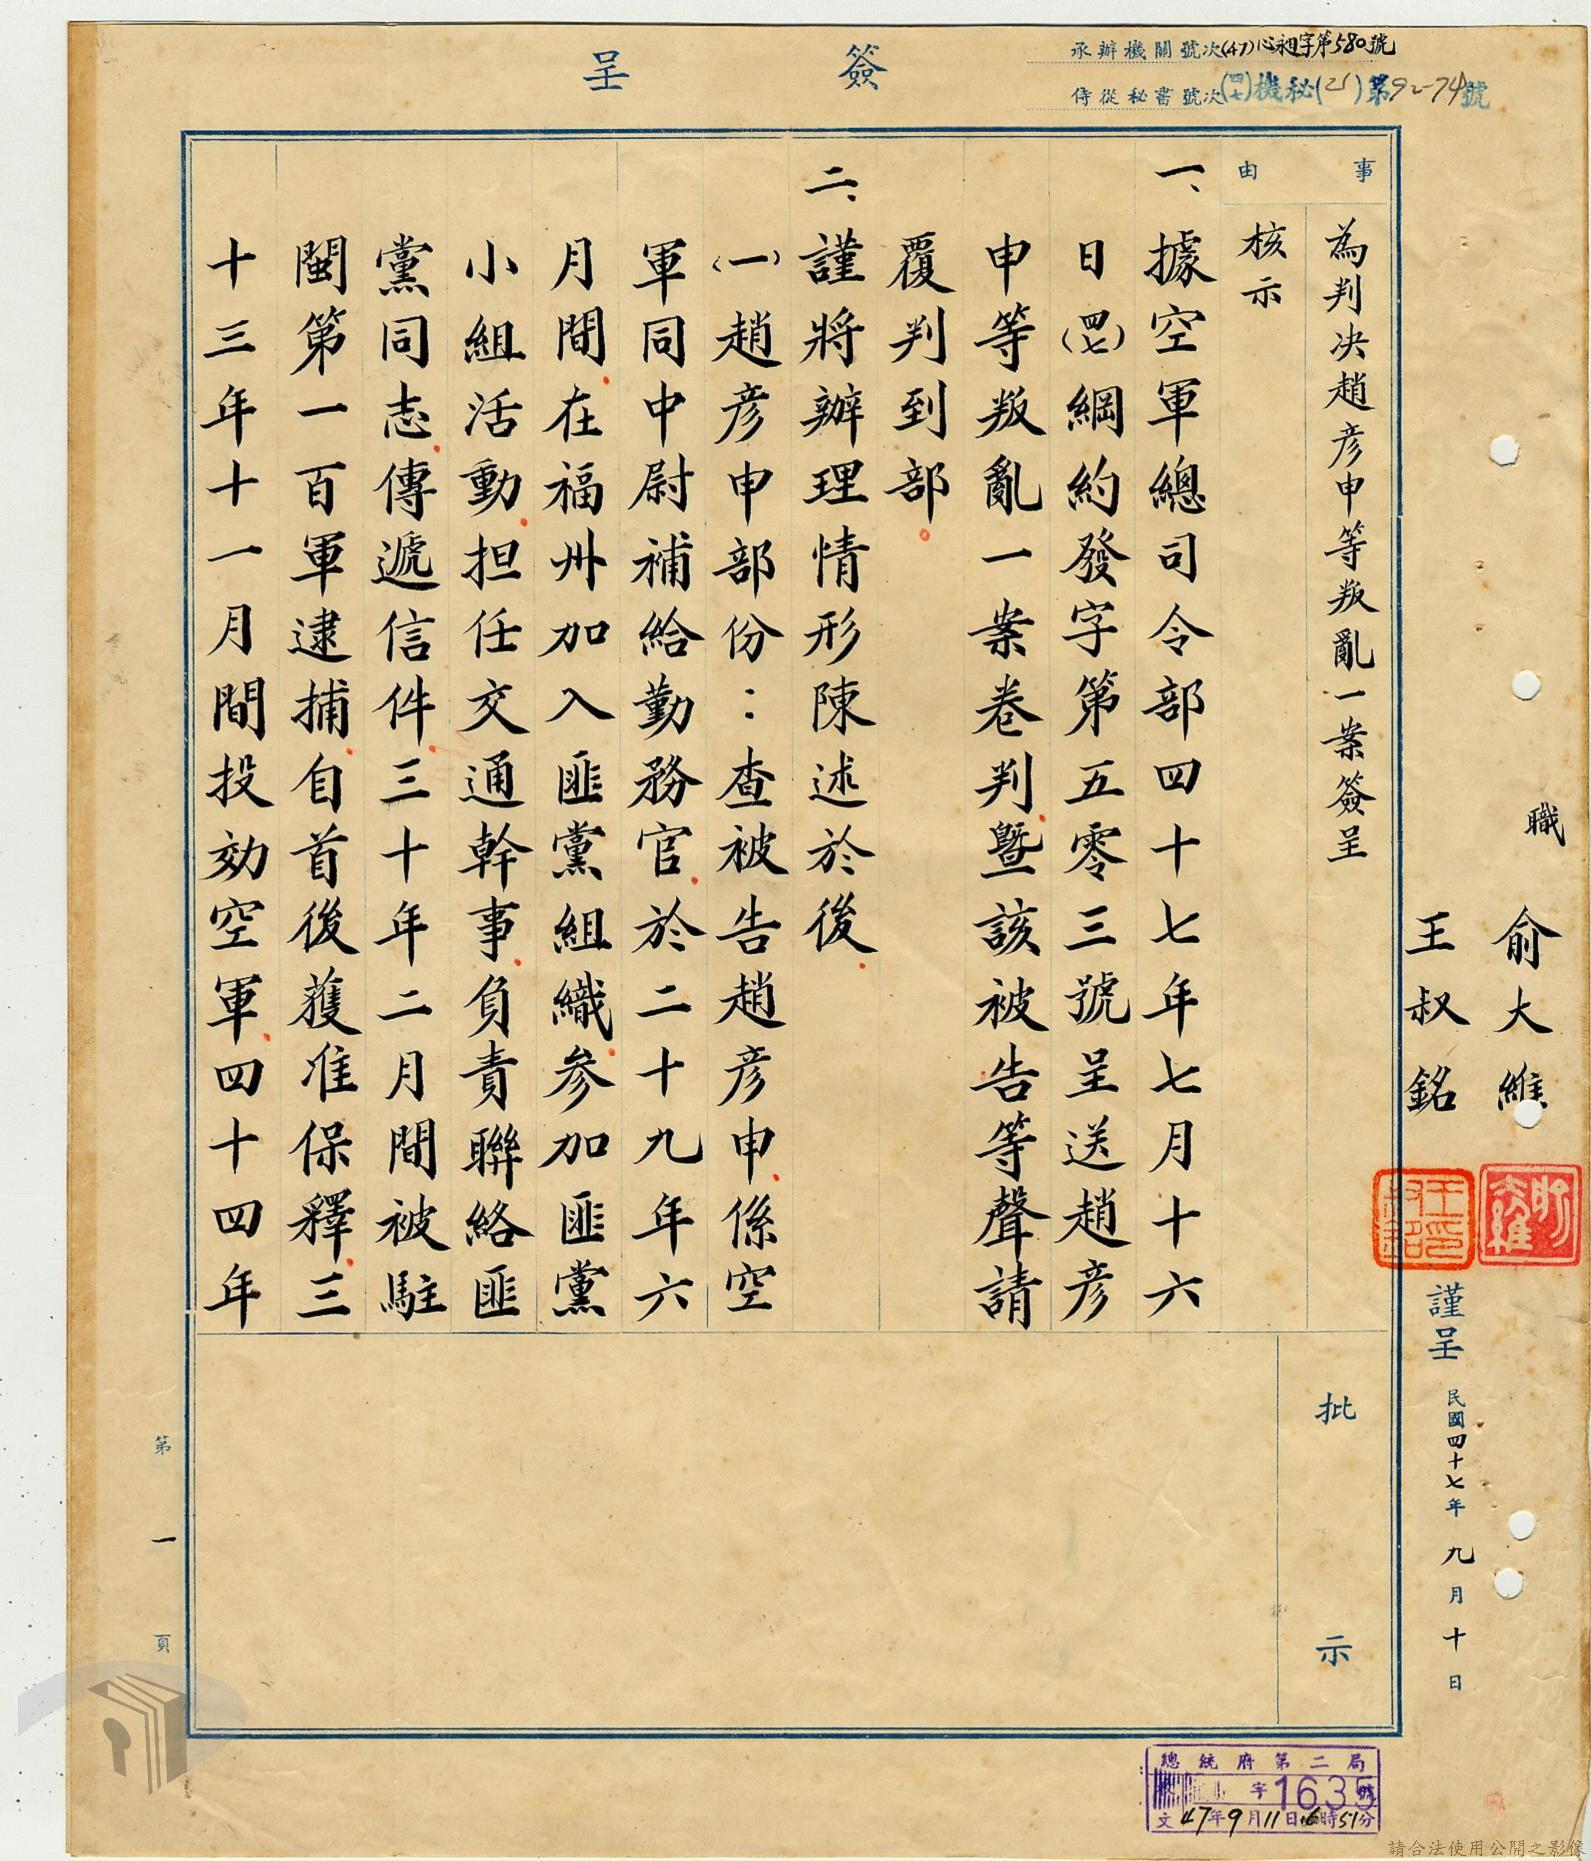 簽呈
承辦機關號次(47)心昶字第580號
侍從秘書號次(四七)機秘(21)第92-74號
事由
為判决趙彥申等叛亂一案簽呈
核示
一、據空軍總司令部四十七年七月十六
日(四七)綱約發字第五零三號呈送趙彥
申等叛亂一案卷判暨該被告等聲請
覆判到部
二、謹將辦理情形陳述於後
(一)趙彥申部份：查被告趙彥申係空
軍同中尉補給勤務官於二十九年六
月間在福州加入匪黨組織參加匪黨
小組活動担任交通幹事負責聯絡匪
黨同志傳遞信件三十年二月間被駐
閩第一百軍逮捕自首後蒦准保釋三
十三年十一月間投効空軍四十四年
批示
職
俞大維
王叔銘
謹呈
民國四十七年九月十日
第一頁
總統府第二局
字1635號
文47年9月11日16時51分
請合法使用公開之影像